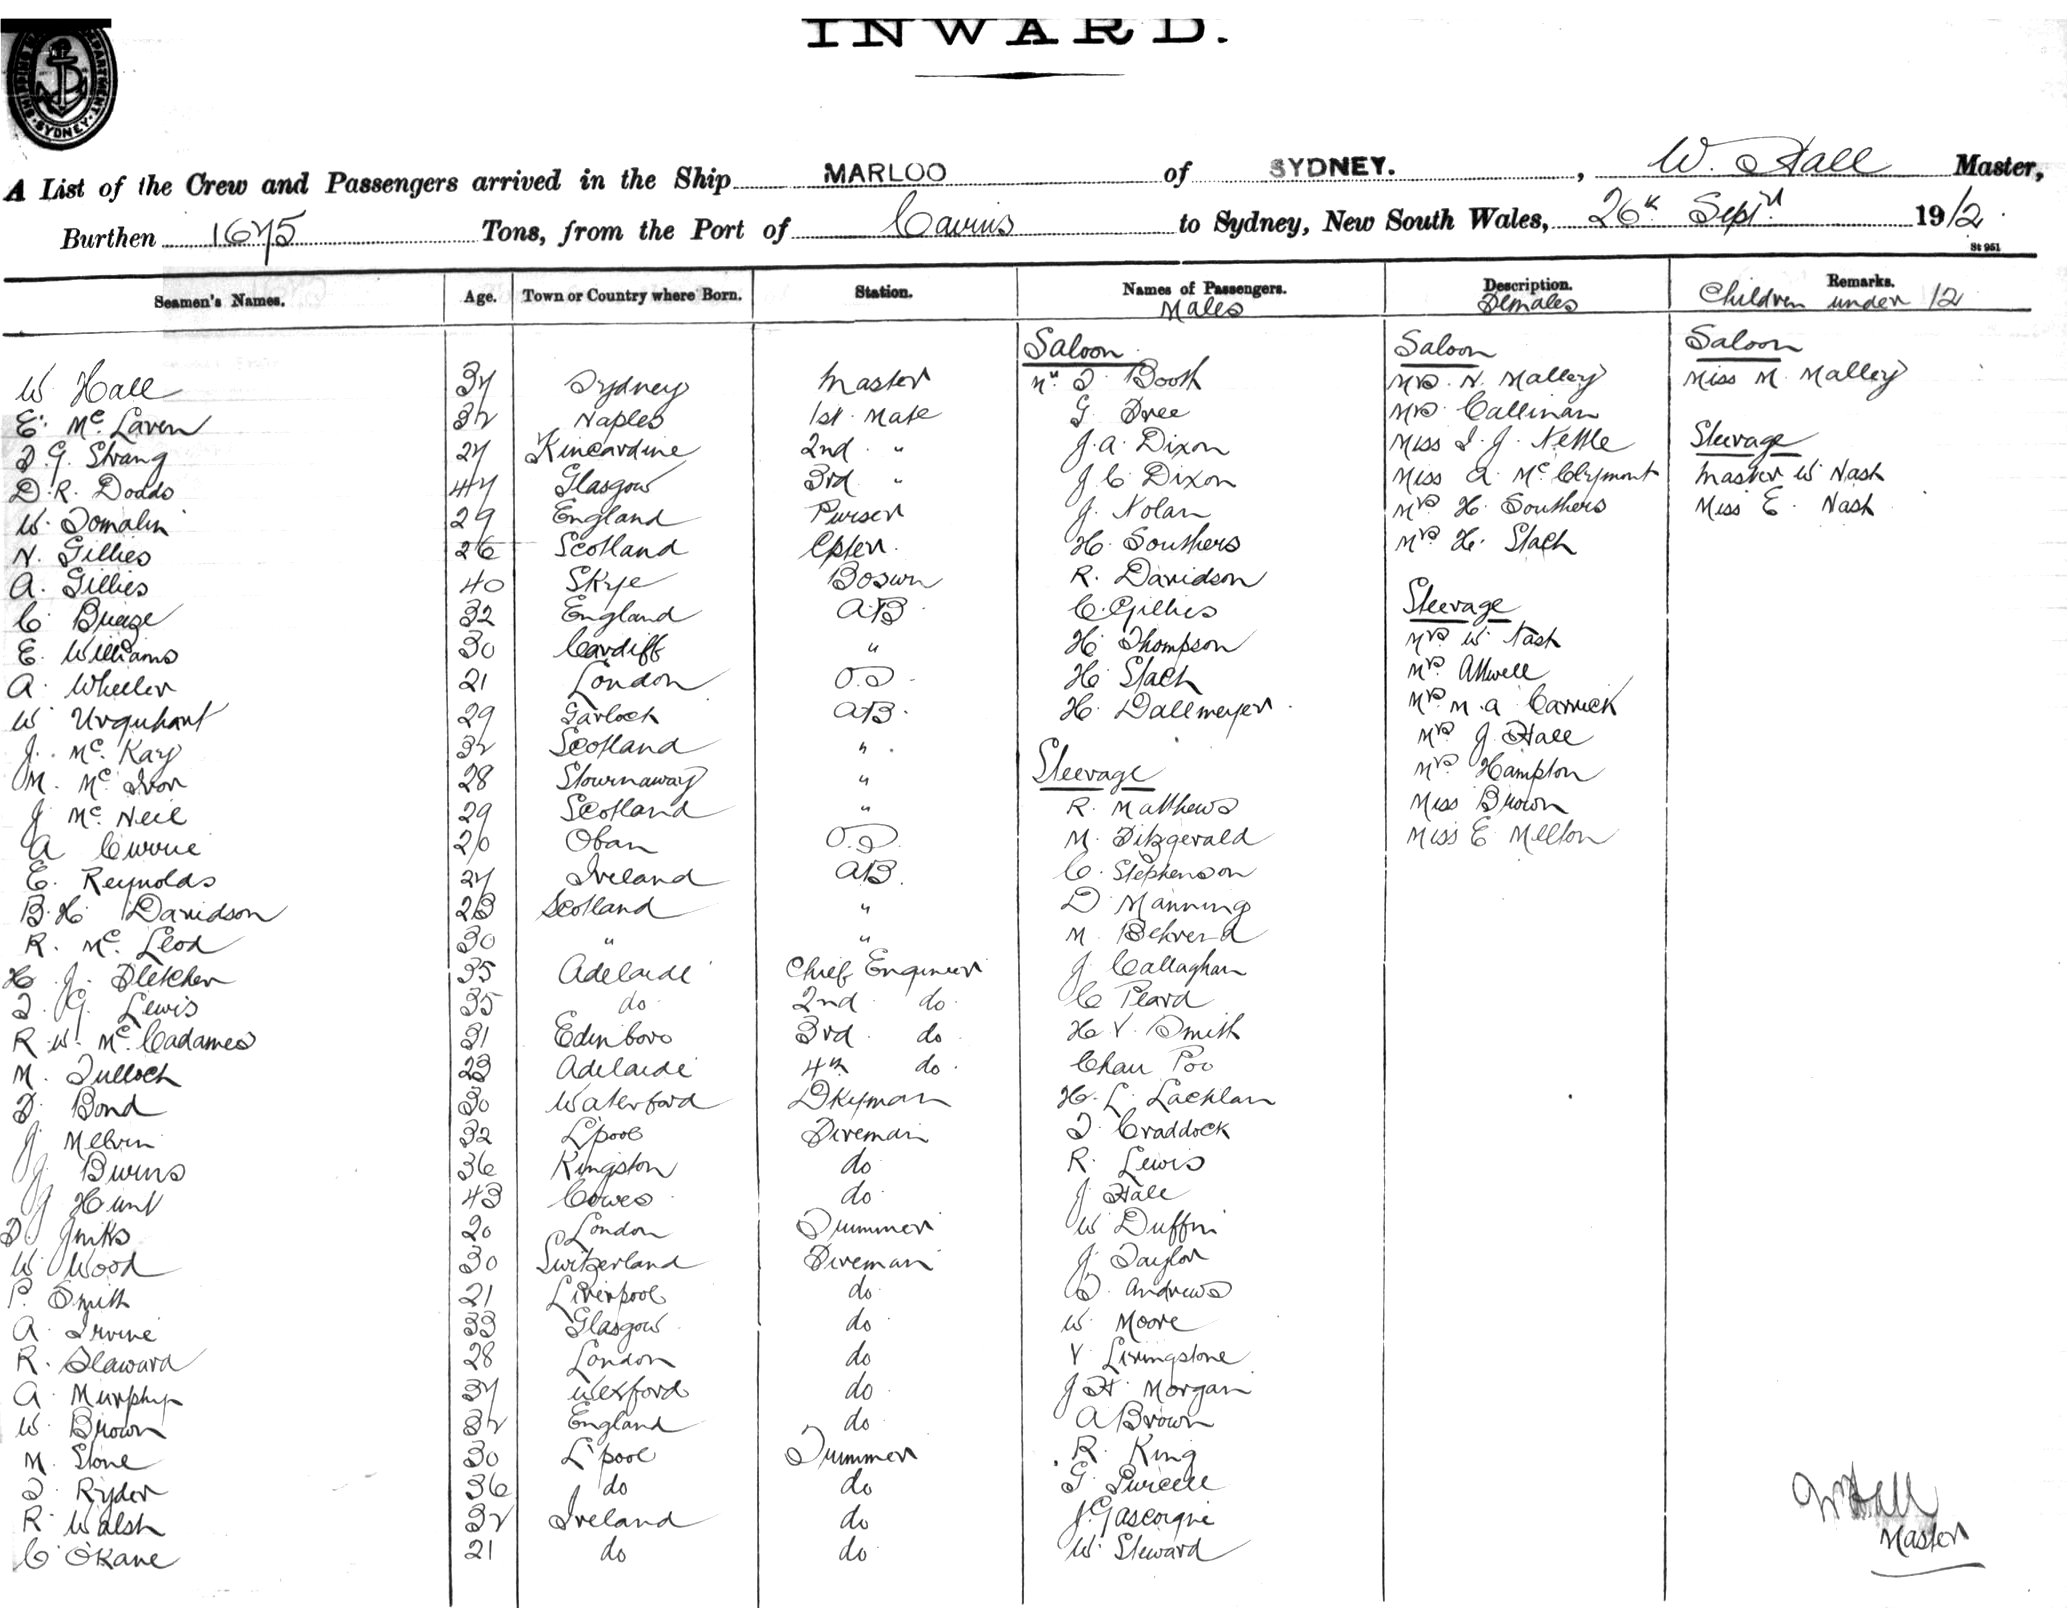 INWARD.
SYDNEY
A List of the Crew and Passengers arrived in the Ship MARLOO of SYDNEY. , W. Hall Master,
Burthen 1675 Tons, from the Port of Cairns to Sydney, New South Wales, 26th Sept 1912.
St 951
Seamen's Names. Age. Town or Country where Born. Station. Names of Passengers. Description. Remarks.
Males Females Children under 12
Saloon Saloon Saloon
W Hall 37 Sydney Master Mr T Booth Mrs. N. Malley Miss M. Malley
E. Mc. Laren 32 Naples 1st Mate G Free Mrs Callinan
T.G. Strang 27 Kincardine 2nd " J.A. Dixon Miss I. J. Nettle Steerage
D.R. Dodds 47 Glasgow 3rd " J C Dixon Miss A Mc Clymont Master W Nash
W. Tomalin 29 England Purser J. Nolan Mrs H. Southers Miss E. Nash
N. Gillies 26 Scotland Cpter. H. Southers Mrs H. Stach
A. Gillies 40 Skye Boswn R. Davidson
C. Breeze 32 England AB C. Gillies Steerage
E. Williams 30 Cardiff " H. Thompson Mrs W. Nash
A. Wheeler 21 London O.S H. Stach Mrs Attwell
W Urquhart 29 Garloch AB. H. Dallmeyer Mrs M.A Carrick
J. Mc. Kay 32 Scotland " Mrs J Hall
M. Mc Ivor 28 Stournaway " Steerage Mrs Hampton
J Mc Neil 29 Scotland " R. Matthews Miss Brown
A Currie 20 Oban O.S M. Fitzgerald Miss E Melton
E. Reynolds 27 Ireland AB. C. Stephenson
B.H. Davidson 23 Scotland " D Manning
R. Mc. Leod 30 " " M. Behrend
H J. Fletcher 35 Adelaide Chief Engineer J Callaghan
T. G. Lewis 35 do 2nd do C Peard
R.W. Mc. Cadames 31 Edinboro 3rd do H V. Smith
M. Tulloch 23 Adelaide 4th do Chau Poo
T. Bond 30 Waterford Dkyman H. L. Lachlan
J Melvin 32 L'pool Fireman T. Craddock
J Burns 36 Kingston do R. Lewis
J Hunt 43 Cowes do J Hall
T. Jinks 20 London Trimmer W Duffin
W Wood 30 Switzerland Fireman J Taylor
P. Smith 21 Liverpool do Andrews
A. Irvine 33 Glasgow do W Moore
R. Seaward 28 London do V Livingstone
A. Murphy 37 Wexford do J H. Morgan
W. Brown 32 England do A Brown
M. Stone 30 L'pool Trimmer R. King
T Ryder 36 do do G Purcell
R. Walsh 32 Ireland do J. Gascoigne
C. O'Kane 21 do do W. Steward
W Hall
Master